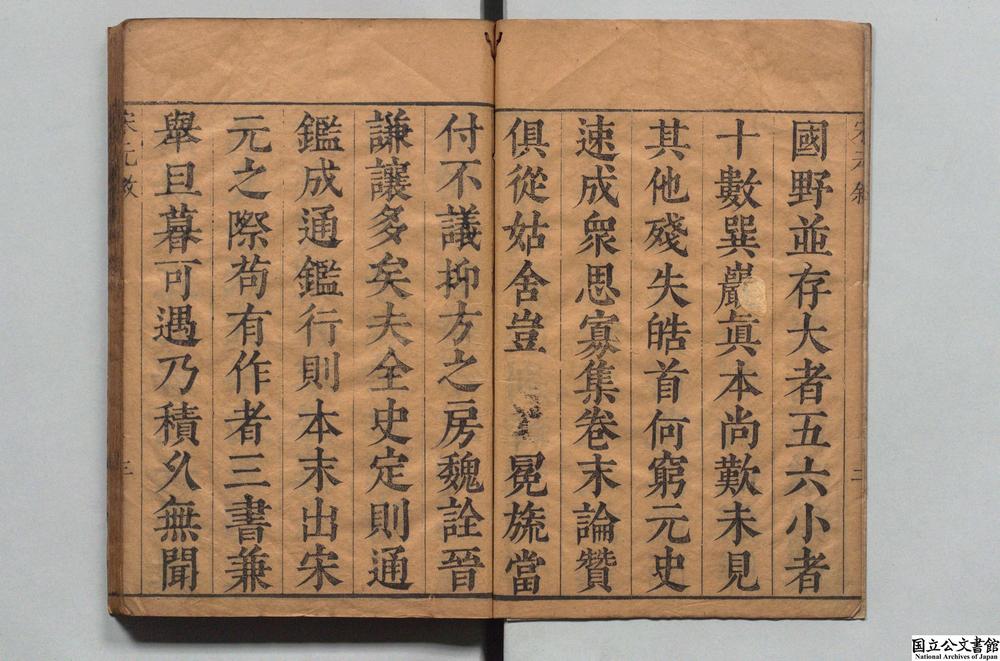 國野並存大者五六小者
十數巽巖眞本尚歎未見
其他殘失皓首何窮元史
速成衆思寡集卷末論贊
俱從姑舍豈冕旒當
付不議抑方之房魏詮晉
謙讓多矣夫全史定則通
鑑成通鑑行則本末出宋
元之際苟有作者三書兼
舉旦暮可遇乃積久無聞
宋元敘
三
国立公文書館
National Archives of Japan